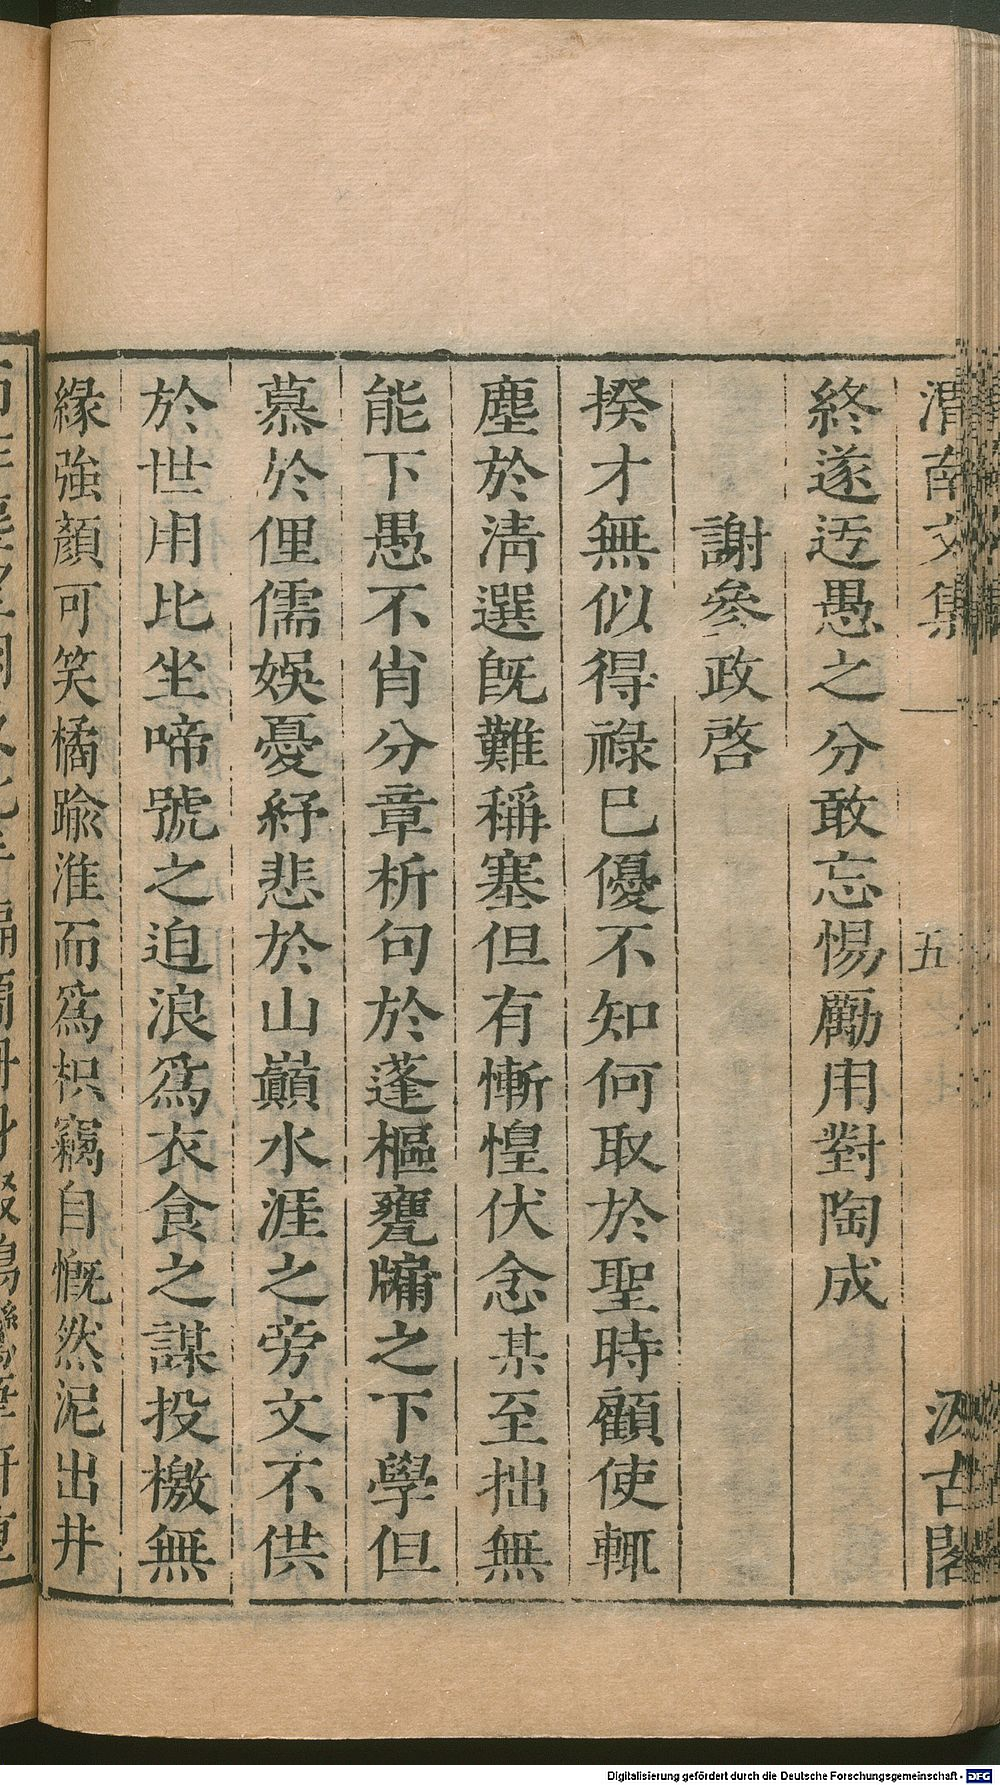 渭南文集 五 汲古閣
終遂迃愚之分敢忘惕勵用對陶成
謝參政啓
揆才無似得祿已優不知何取於聖時顧使輒
塵於淸選旣難稱塞但有慚惶伏念某至拙無
能下愚不肖分章析句於蓬樞甕牖之下學但
慕於俚儒娛憂紓悲於山巔水涯之旁文不供
於世用比坐啼號之迫浪爲衣食之謀投檄無
緣強顏可笑橘踰淮而爲枳竊自慨然泥出井
Digitalisierung gefördert durch die Deutsche Forschungsgemeinschaft - DFG